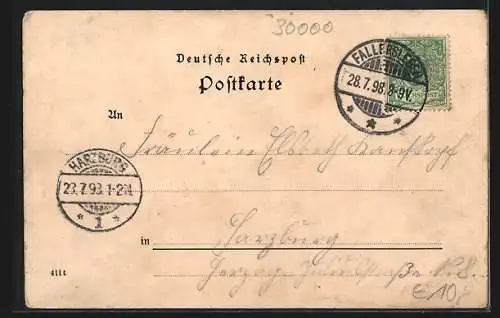 30000
Deutsche Reichspost
Postkarte
FALLERSLEBEN
28.7.98.8-9V.
An
Fräulein Elsbeth
HARZBURG
23.7.98.1-2N.
* 1 *
in Harzburg
Herzog N. 8.
4114
€ 10,